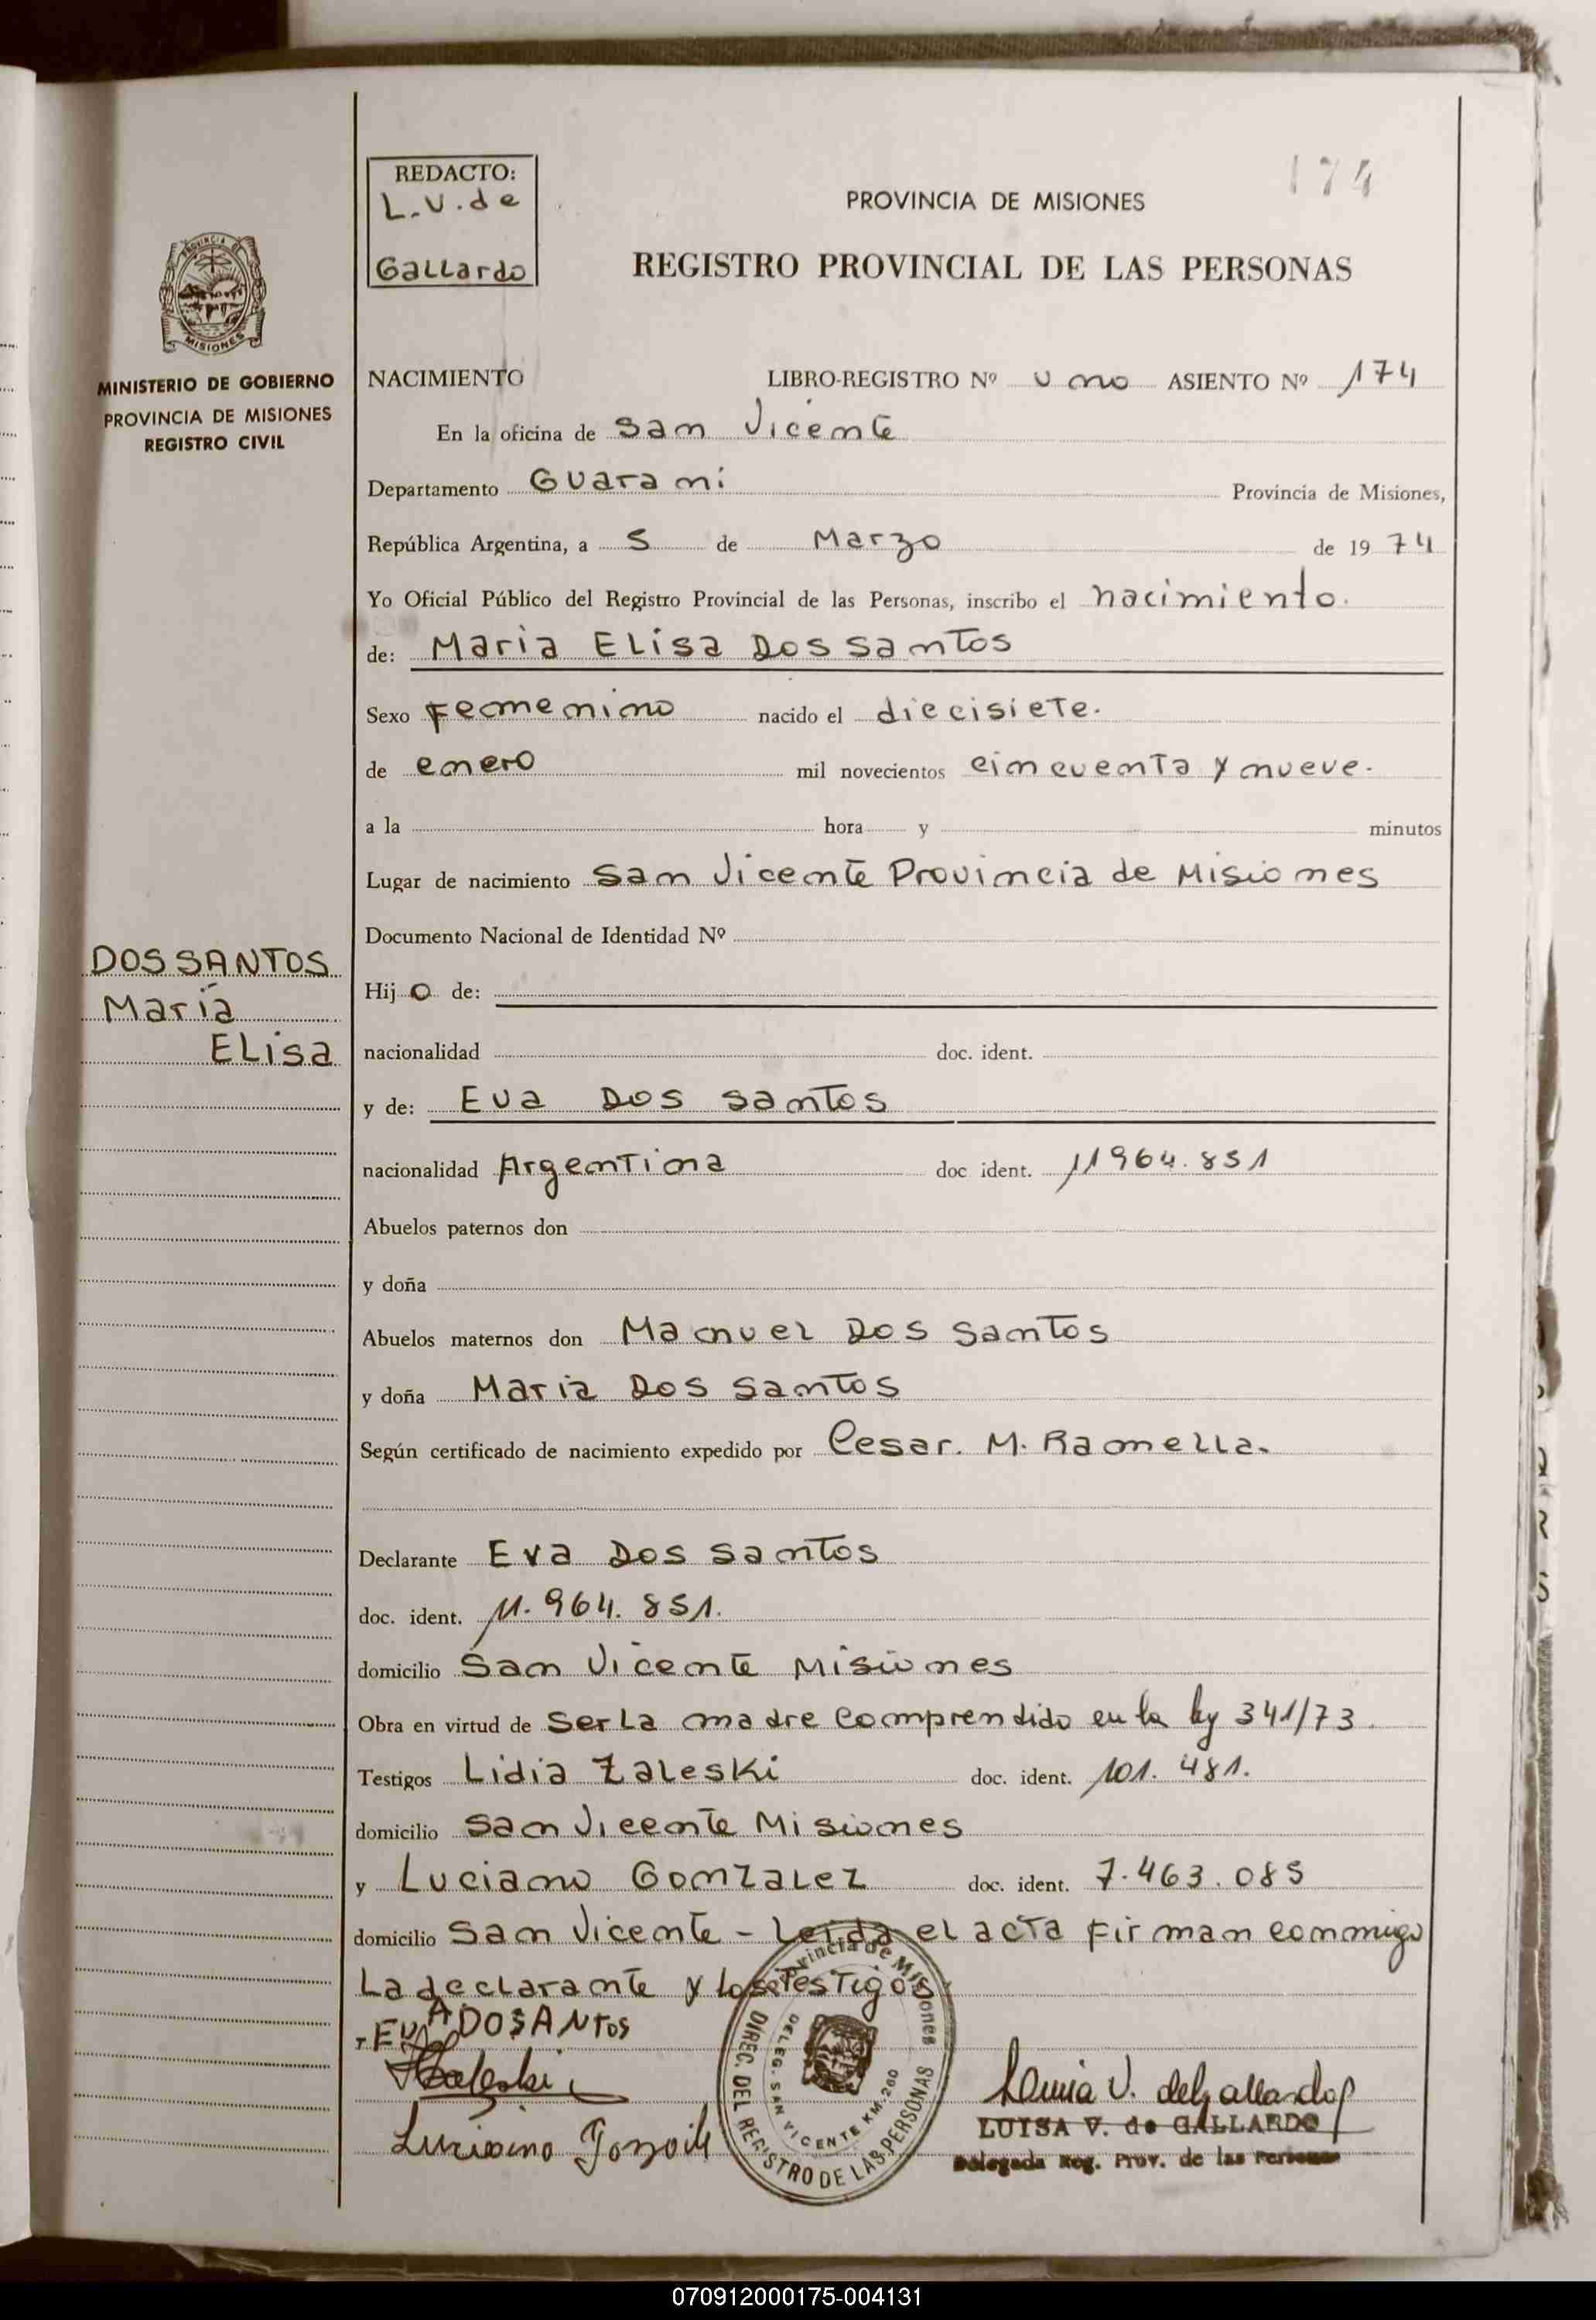 174
REDACTO:
L.V. de
Gallardo
PROVINCIA DE MISIONES
REGISTRO PROVINCIAL DE LAS PERSONAS
PROVINCIA DE
MISIONES
MINISTERIO DE GOBIERNO
PROVINCIA DE MISIONES
REGISTRO CIVIL
NACIMIENTO LIBRO-REGISTRO Nº uno ASIENTO Nº 174
En la oficina de San Vicente
Departamento Guarani Provincia de Misiones,
República Argentina, a 5 de Marzo de 1974
Yo Oficial Público del Registro Provincial de las Personas, inscribo el nacimiento.
de: Maria Elisa Dos santos
Sexo Femenino nacido el diecisiete.
de enero mil novecientos cincuenta y nueve.
a la hora y minutos
Lugar de nacimiento San Vicente Provincia de Misiones
Documento Nacional de Identidad Nº
DOS SANTOS
María
Elisa
Hijo de:
nacionalidad doc. ident.
y de: Eva Dos santos
nacionalidad Argentina doc ident. 11964.851
Abuelos paternos don
y doña
Abuelos maternos don Manuel Dos santos
y doña Maria Dos santos
Según certificado de nacimiento expedido por Cesar. M. Ramella.
Declarante Eva Dos santos
doc. ident. 11.964.851.
domicilio San Vicente Misiones
Obra en virtud de ser la madre comprendido en la ley 341/73.
Testigos Lidia Zaleski doc. ident. 101.481.
domicilio San Vicente Misiones
y Luciano Gonzalez doc. ident. 7.463.085
domicilio San Vicente - Leida el acta firman conmigo
La declarante y los testigos
EVA DOSANtos
Zaleski
Luciano
Provincia de Misiones
DIREC. DEL REGISTRO DE LAS PERSONAS
DELEG. SAN VICENTE KM. 260
Luisa V. de Gallardo
LUISA V. de GALLARDO
Delegada Reg. Prov. de las Personas
070912000175-004131